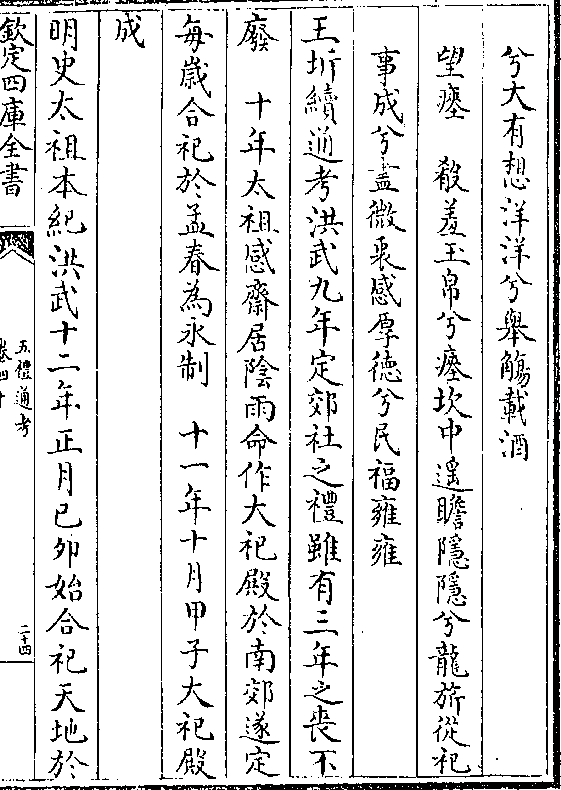 兮大有想洋洋兮舉觴載酒
望瘞　殽羞玉帛兮瘞坎中遥瞻隱隱兮龍旂從祀
事成兮盡微衷感厚德兮民福雍雍
王圻續通考洪武九年定郊社之禮雖有三年之喪不
廢　十年太祖感齋居陰雨命作大祀殿於南郊遂定
每嵗合祀於孟春為永制　十一年十月甲子大祀殿
成
明史太祖本紀洪武十二年正月己夘始合祀天地於
欽定四庫全書
五禮通考
卷四十
二十四